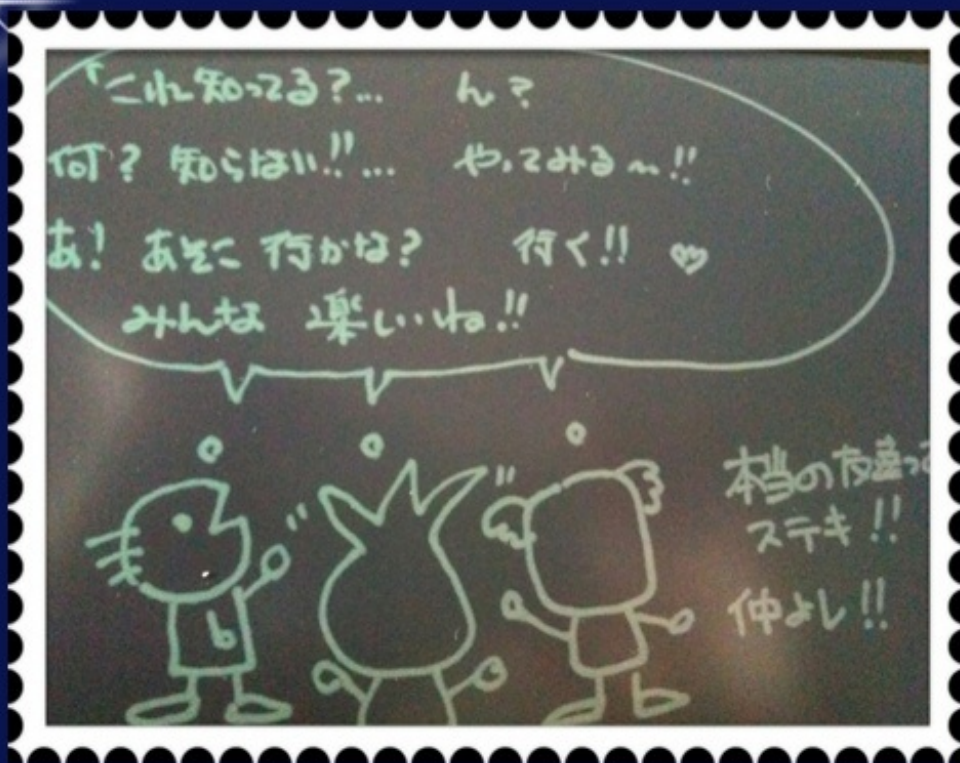 「これ知ってる?... ん?
何? 知らない!!... やってみる〜!!
あ! あそこ 行かな? 行く!! ♡
みんな 楽しいね!!
本当の友達って
ステキ!!
仲よし!!